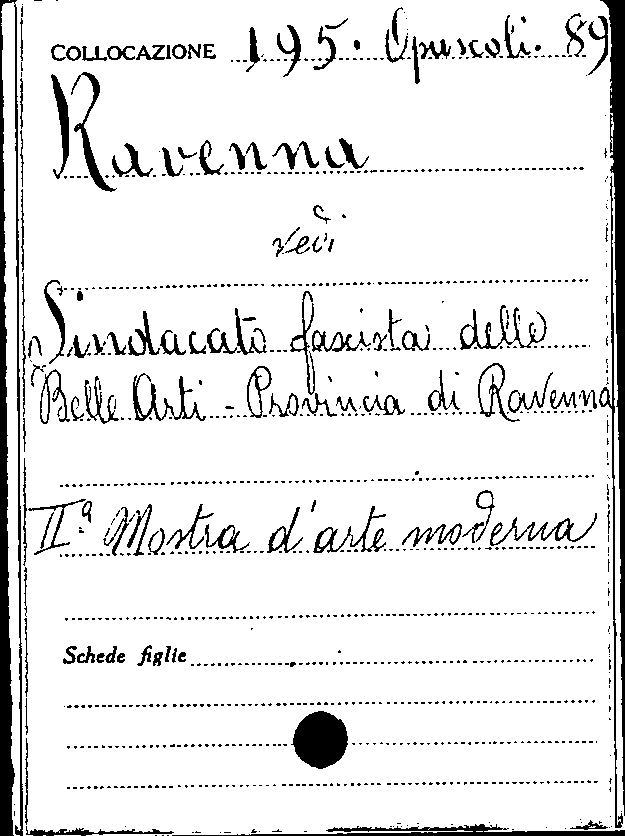 COLLOCAZIONE 195. Opuscoli. 89
Ravenna
vedi
Sindacato fascista delle
Belle Arti - Provincia di Ravenna
IIª Mostra d'arte moderna
Schede figlie